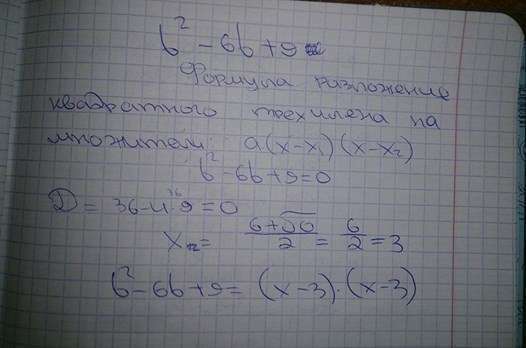 b² - 6b + 9
Формула разложение
квадратного трехчлена на
множители: a(x-x₁)(x-x₂)
b² - 6b + 9 = 0
D = 36 - 4·9 = 0
x₁₂ = (6+√0)/2 = 6/2 = 3
b² - 6b + 9 = (x-3)·(x-3)